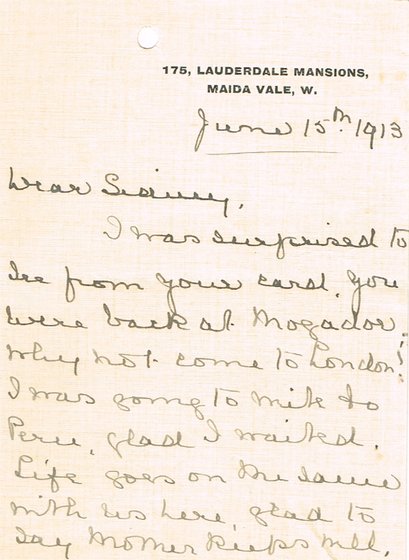 175, LAUDERDALE MANSIONS,
MAIDA VALE, W.
June 15th 1913
Dear Sidney,
I was surprised to
see from your card, you
were back at Mogador.
Why not come to London!
I was going to write to
Peru, glad I waited.
Life goes on the same
with us here, glad to
say Mother keeps well,